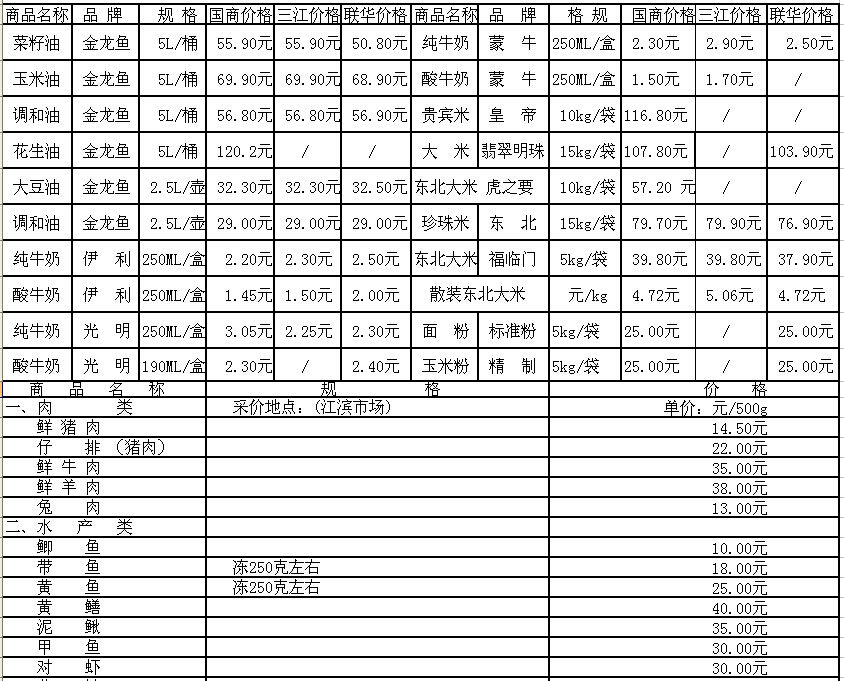 商品名称 品 牌 规 格 国商价格 三江价格 联华价格 商品名称 品 牌 格 规 国商价格 三江价格 联华价格
菜籽油 金龙鱼 5L/桶 55.90元 55.90元 50.80元 纯牛奶 蒙 牛 250ML/盒 2.30元 2.90元 2.50元
玉米油 金龙鱼 5L/桶 69.90元 69.90元 68.90元 酸牛奶 蒙 牛 250ML/盒 1.50元 1.70元 /
调和油 金龙鱼 5L/桶 56.80元 56.80元 56.90元 贵宾米 皇 帝 10kg/袋 116.80元 / /
花生油 金龙鱼 5L/桶 120.2元 / / 大 米 翡翠明珠 15kg/袋 107.80元 / 103.90元
大豆油 金龙鱼 2.5L/壶 32.30元 32.30元 32.50元 东北大米 虎之要 10kg/袋 57.20 元 / /
调和油 金龙鱼 2.5L/壶 29.00元 29.00元 29.00元 珍珠米 东 北 15kg/袋 79.70元 79.90元 76.90元
纯牛奶 伊 利 250ML/盒 2.20元 2.30元 2.50元 东北大米 福临门 5kg/袋 39.80元 39.80元 37.90元
酸牛奶 伊 利 250ML/盒 1.45元 1.50元 2.00元 散装东北大米 元/kg 4.72元 5.06元 4.72元
纯牛奶 光 明 250ML/盒 3.05元 2.25元 2.30元 面 粉 标准粉 5kg/袋 25.00元 / 25.00元
酸牛奶 光 明 190ML/盒 2.30元 / 2.40元 玉米粉 精 制 5kg/袋 25.00元 / 25.00元
商 品 名 称 规 格 价 格
一、肉 类 采价地点：(江滨市场) 单价：元/500g
鲜 猪 肉 14.50元
仔 排 （猪肉） 22.00元
鲜 牛 肉 35.00元
鲜 羊 肉 38.00元
兔 肉 13.00元
二、水 产 类
鲫 鱼 10.00元
带 鱼 冻250克左右 18.00元
黄 鱼 冻250克左右 25.00元
黄 鳝 40.00元
泥 鳅 35.00元
甲 鱼 30.00元
对 虾 30.00元